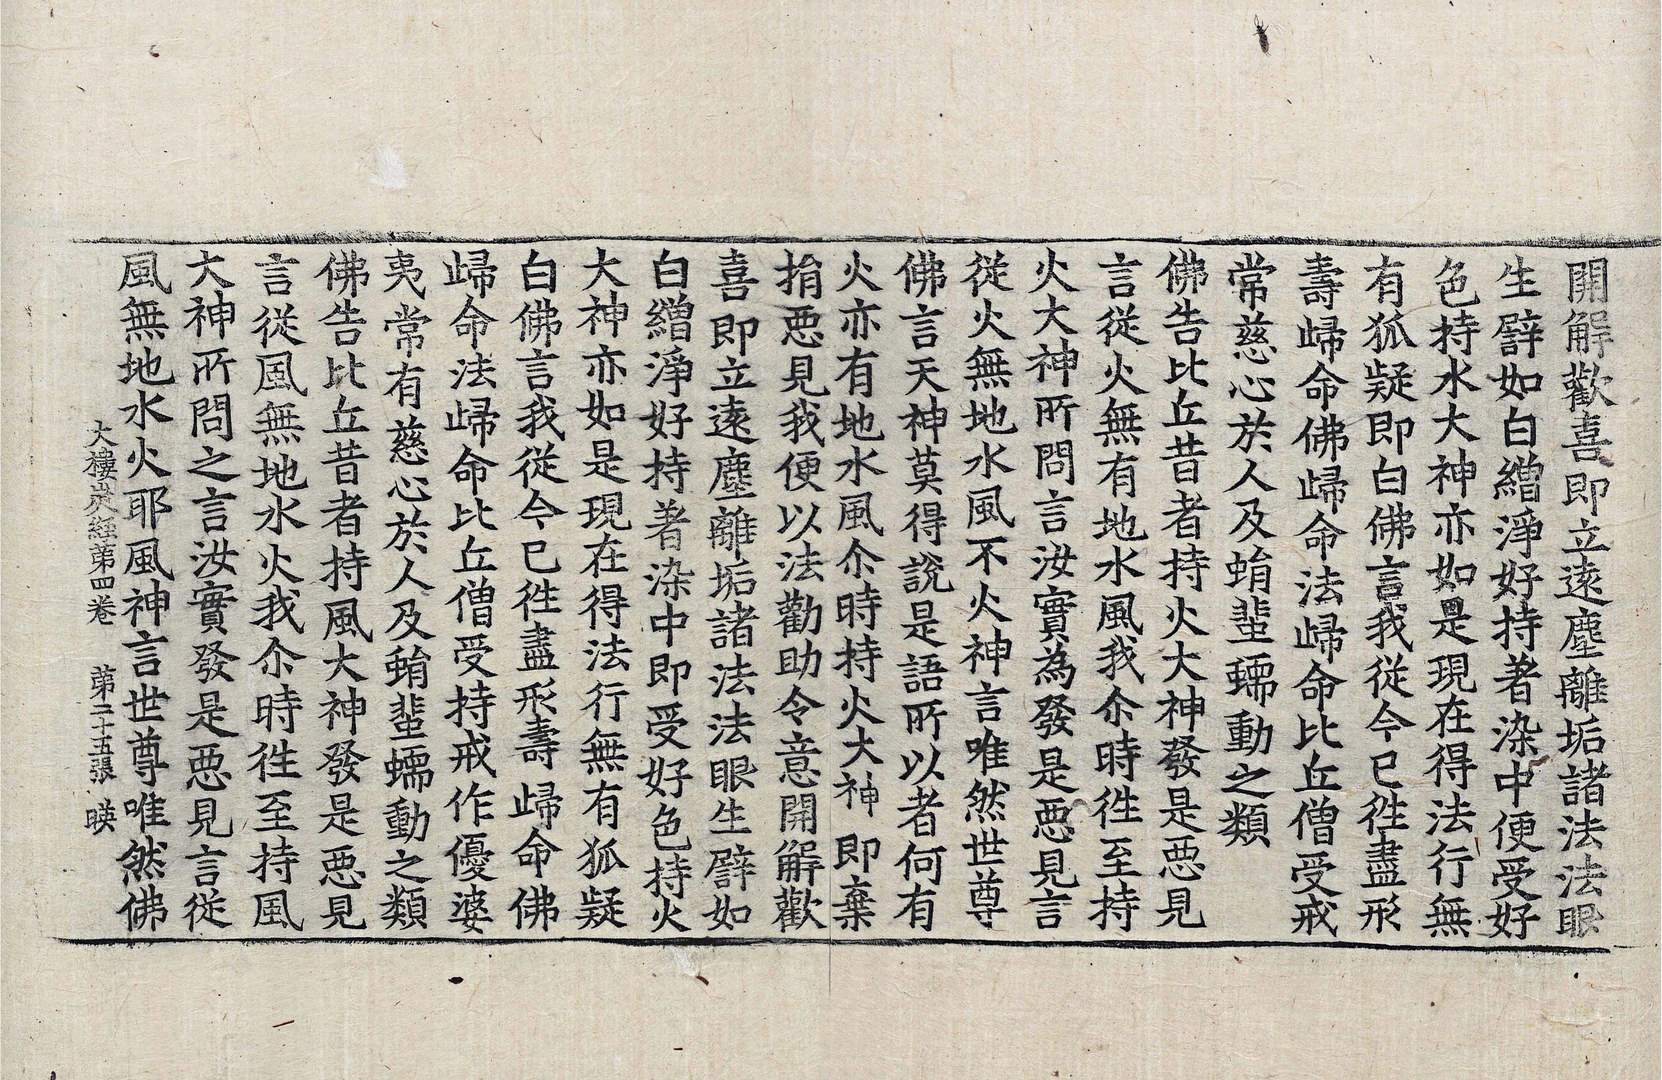 開解歡喜即立遠塵離垢諸法法眼
生譬如白繒淨好持著染中便受好
色持水大神亦如是現在得法行無
有狐疑即白佛言我從今已徃盡形
壽歸命佛歸命法歸命比丘僧受戒
常慈心於人及蜎蜚蠕動之類
佛告比丘昔者持火大神發是惡見
言從火無有地水風我尒時徃至持
火大神所問言汝實為發是惡見言
從火無地水風不火神言唯然世尊
佛言天神莫得說是語所以者何有
火亦有地水風尒時持火大神即棄
捐惡見我便以法勸助令意開解歡
喜即立遠塵離垢諸法法眼生譬如
白繒淨好持著染中即受好色持火
大神亦如是現在得法行無有狐疑
白佛言我從今已徃盡形壽歸命佛
歸命法歸命比丘僧受持戒作優婆
夷常有慈心於人及蜎蜚蠕動之類
佛告比丘昔者持風大神發是惡見
言從風無地水火我尒時徃至持風
大神所問之言汝實發是惡見言從
風無地水火耶風神言世尊唯然佛
大樓炭経苐四卷　苐二十五張　暎